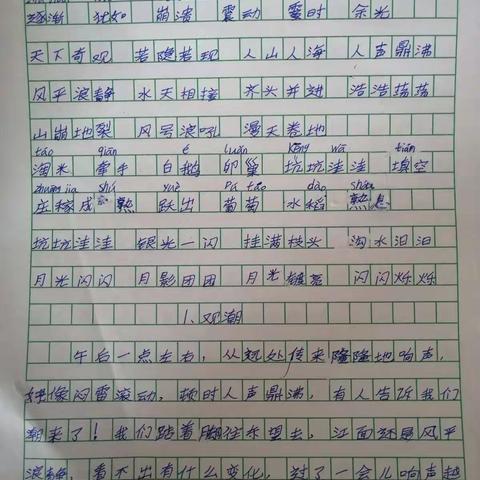 逐渐 犹如 崩溃 震动 霎时 余光
天下奇观 若隐若现 人山人海 人声鼎沸
风平浪静 水天相接 齐头并进 浩浩荡荡
山崩地裂 风号浪吼 漫天卷地
táo qiān é luǎn kēng wā tián
淘米 牵手 白鹅 卵巢 坑坑洼洼 填空
zhuāng jia shú yuè pú táo dào shú
庄稼成熟 跃出 葡萄 水稻 熟悉
坑坑洼洼 银光一闪 挂满枝头 沟水汩汩
月光闪闪 月影团团 月光镀亮 闪闪烁烁
1、观潮
午后一点左右，从远处传来隆隆地响声，
好像闷雷滚动，顿时人声鼎沸，有人告诉我们
潮来了！我们踮着脚往东望去，江面还是风平
浪静，看不出有什么变化，过了一会儿响声越